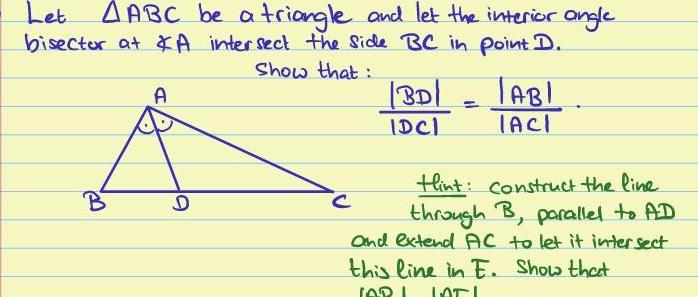 Let △ABC be a triangle and let the interior angle
bisector at ∡A intersect the side BC in point D.
Show that:
|BD| / |DC| = |AB| / |AC| .
A
B D C
Hint: construct the line
through B, parallel to AD
and extend AC to let it intersect
this line in E. Show that